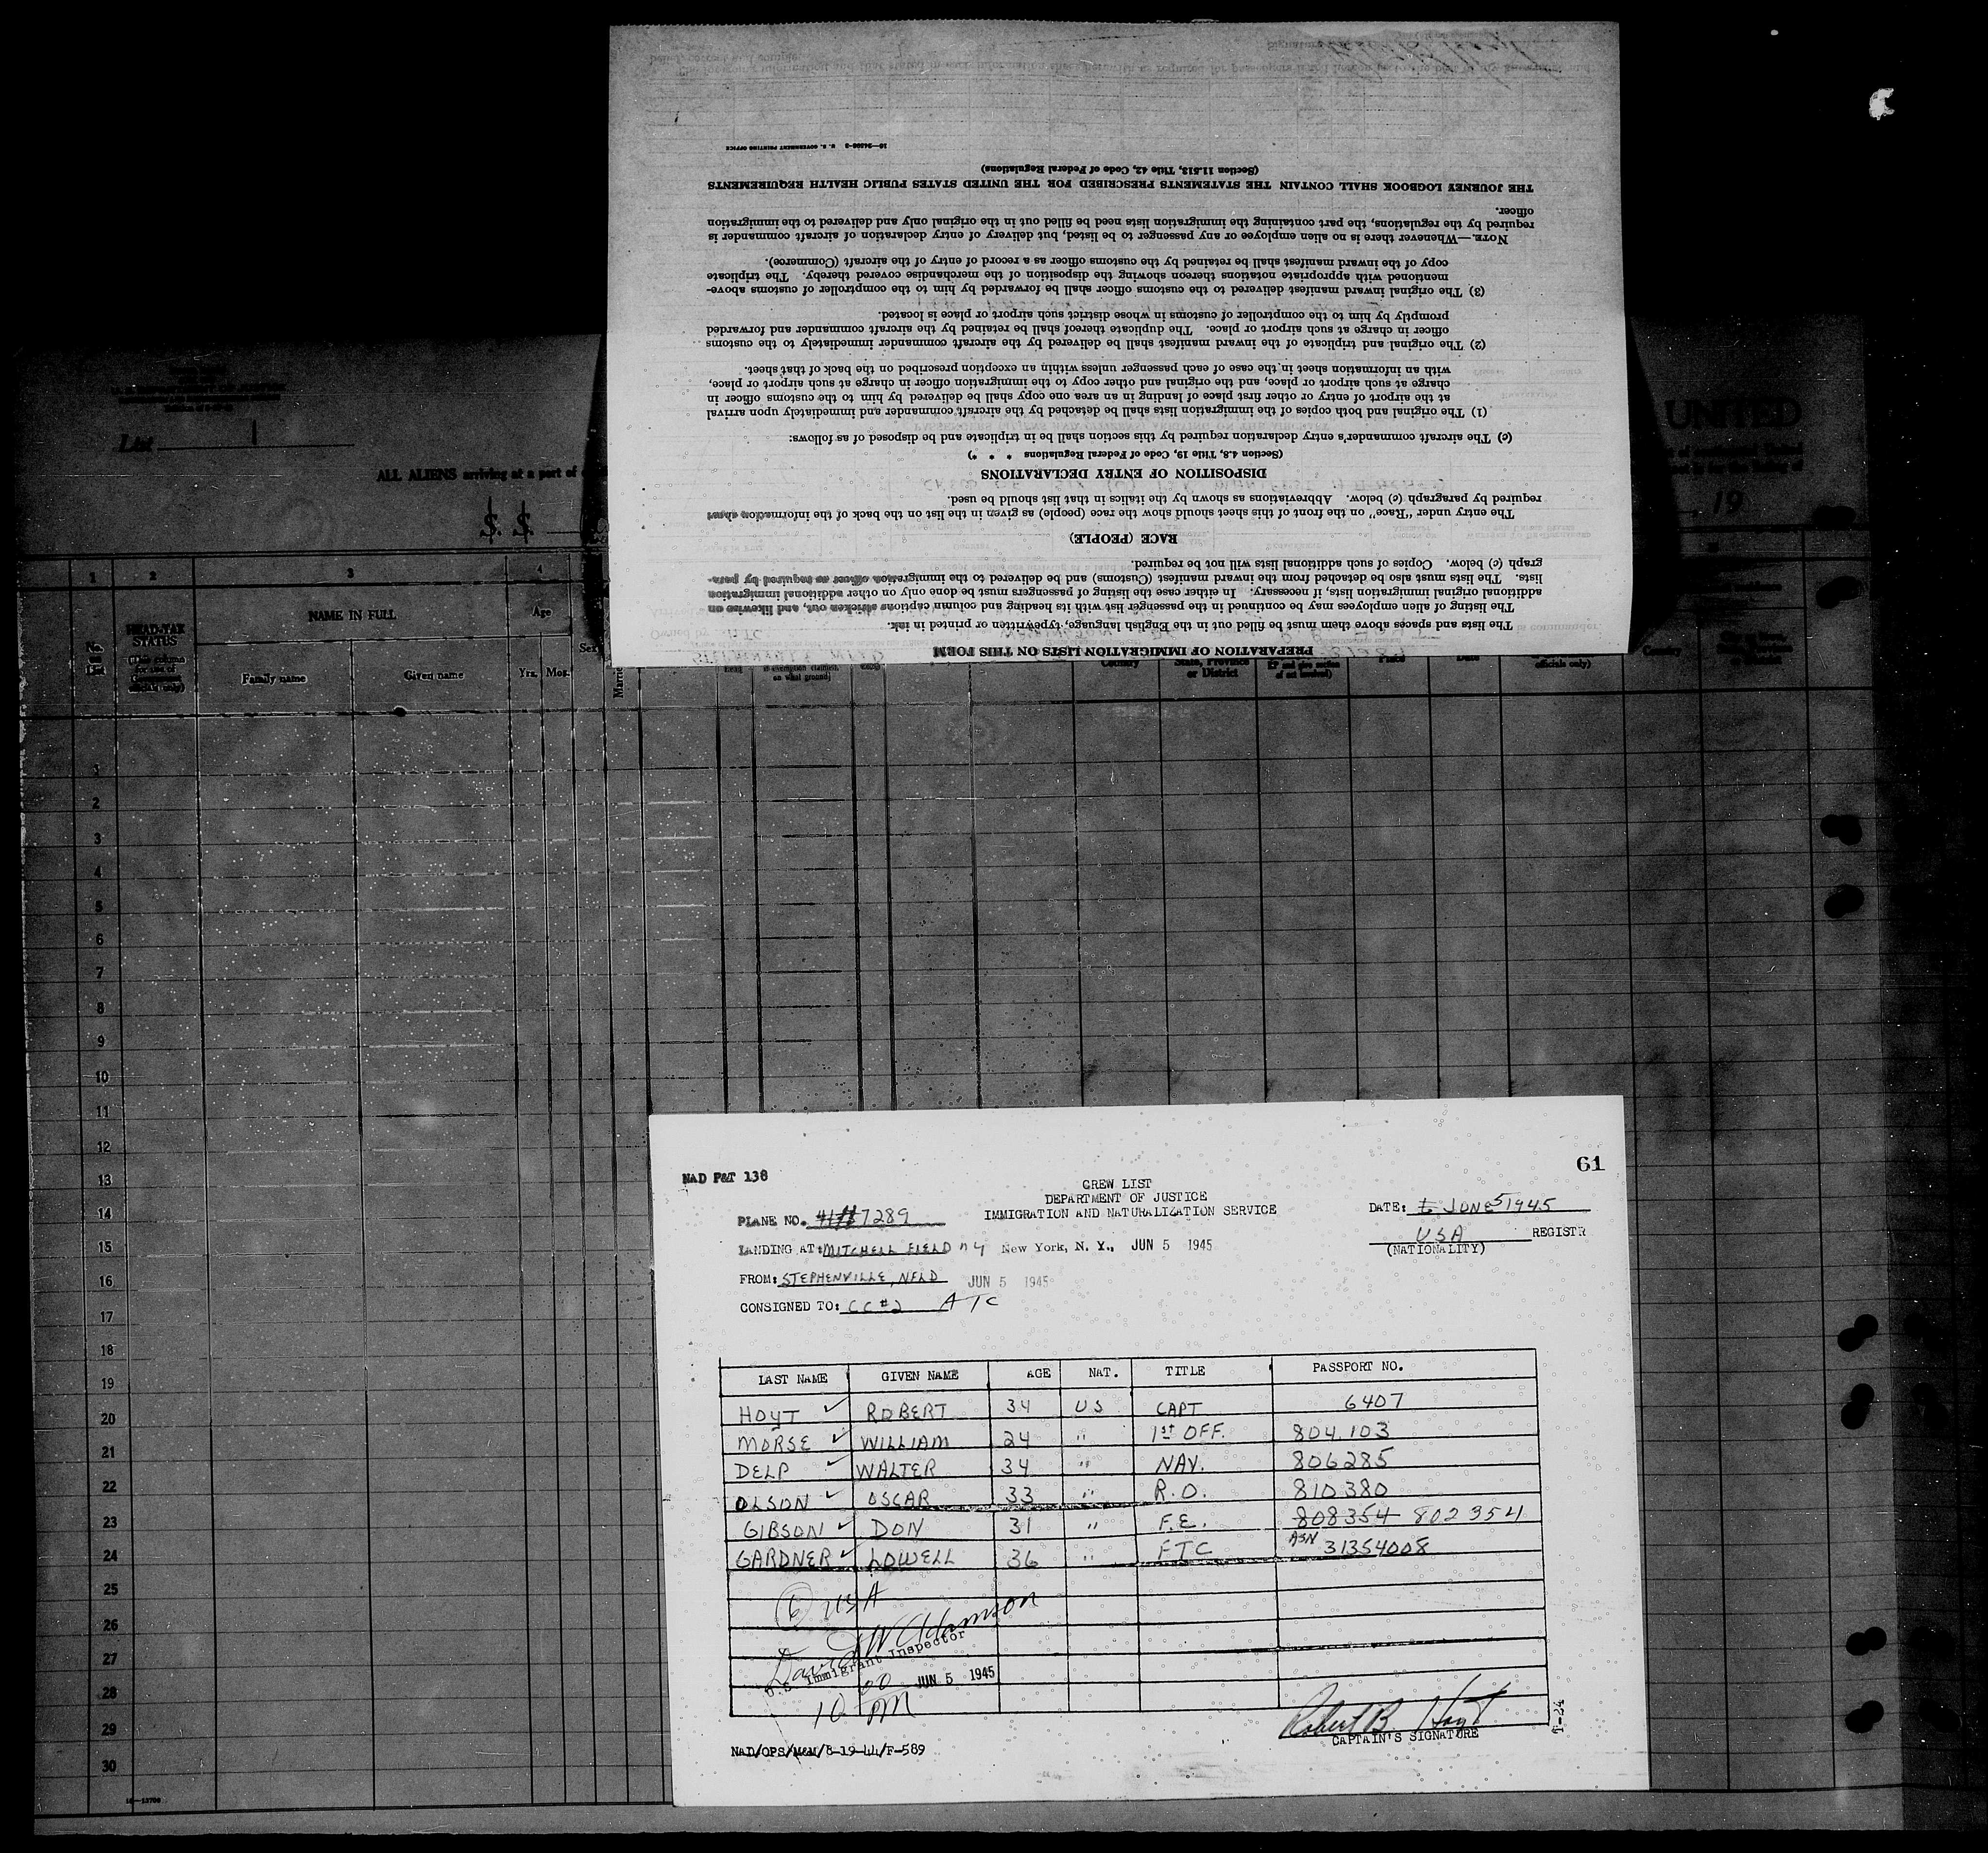 16—24598-3 U. S. GOVERNMENT PRINTING OFFICE
PREPARATION OF IMMIGRATION LISTS ON THIS FORM
The lists and spaces above them must be filled out in the English language, typewritten or printed in ink.
The listing of alien employees may be continued in the passenger list with its heading and column captions stricken out, and likewise on
additional original immigration lists, if necessary. In either case the listing of passengers must be done only on other additional immigration
lists. The lists must also be detached from the inward manifest (Customs) and be delivered to the immigration officer as required by para-
graph (c) below. Copies of such additional lists will not be required.
RACE (PEOPLE)
The entry under "Race" on the front of this sheet should show the race (people) as given in the list on the back of the information sheet
required by paragraph (c) below. Abbreviations as shown by the italics in that list should be used.
DISPOSITION OF ENTRY DECLARATIONS
(Section 4.8, Title 19, Code of Federal Regulations * * *)
(c) The aircraft commander's entry declaration required by this section shall be in triplicate and be disposed of as follows:
(1) The original and both copies of the immigration lists shall be detached by the aircraft commander and immediately upon arrival
at the airport of entry or other first place of landing in an area one copy shall be delivered by him to the customs officer in
charge at such airport or place, and the original and other copy to the immigration officer in charge at such airport or place,
with an information sheet in the case of each passenger unless within an exception prescribed on the back of that sheet.
(2) The original and triplicate of the inward manifest shall be delivered by the aircraft commander immediately to the customs
officer in charge at such airport or place. The duplicate thereof shall be retained by the aircraft commander and forwarded
promptly by him to the comptroller of customs in whose district such airport or place is located.
(3) The original inward manifest delivered to the customs officer shall be forwarded by him to the comptroller of customs above-
mentioned with appropriate notations thereon showing the disposition of the merchandise covered thereby. The triplicate
copy of the inward manifest shall be retained by the customs officer as a record of entry of the aircraft (Commerce).
NOTE.—Whenever there is no alien employee or any passenger to be listed, but delivery of entry declaration of aircraft commander is
required by the regulations, the part containing the immigration lists need be filled out in the original only and delivered to the immigration
officer.
THE JOURNEY LOGBOOK SHALL CONTAIN THE STATEMENTS PRESCRIBED FOR THE UNITED STATES PUBLIC HEALTH REQUIREMENTS
(Section 11.513, Title 42, Code of Federal Regulations)
List 1
UNITED
ALL ALIENS arriving at a port of
, 19
1 2 3 4
No. HEAD-TAX STATUS NAME IN FULL Age Sex
Family name Given name Yrs. Mos.
Country State, Province or District Place Date officials only) Country
1
2
3
4
5
6
7
8
9
10
11
12
13
14
15
16
17
18
19
20
21
22
23
24
25
26
27
28
29
30
61
NAD P&T 138
CREW LIST
DEPARTMENT OF JUSTICE
IMMIGRATION AND NATURALIZATION SERVICE
PLANE NO. 7289
DATE: JUNE 5 1945
LANDING AT: MITCHELL FIELD NY New York, N. Y., JUN 5 1945
USA REGISTR
(NATIONALITY)
FROM: STEPHENVILLE, NFLD JUN 5 1945
CONSIGNED TO: CC #2 ATC
LAST NAME GIVEN NAME AGE NAT. TITLE PASSPORT NO.
HOYT ✓ ROBERT 34 US CAPT 6407
MORSE ✓ WILLIAM 24 " 1st OFF. 804103
DELP ✓ WALTER 34 " NAV. 806285
OLSON ✓ OSCAR 33 " R.O. 810380
GIBSON ✓ DON 31 " F.E. 808354 802354
GARDNER ✓ LOWELL 36 " FTC ASN 31354008
(6) USA
David W Adamson
U.S. Immigrant Inspector
JUN 5 1945
10 00 PM
Robert B. Hoyt
CAPTAIN'S SIGNATURE
NAD/OPS/M&M/8-19-44/F-589
T-24